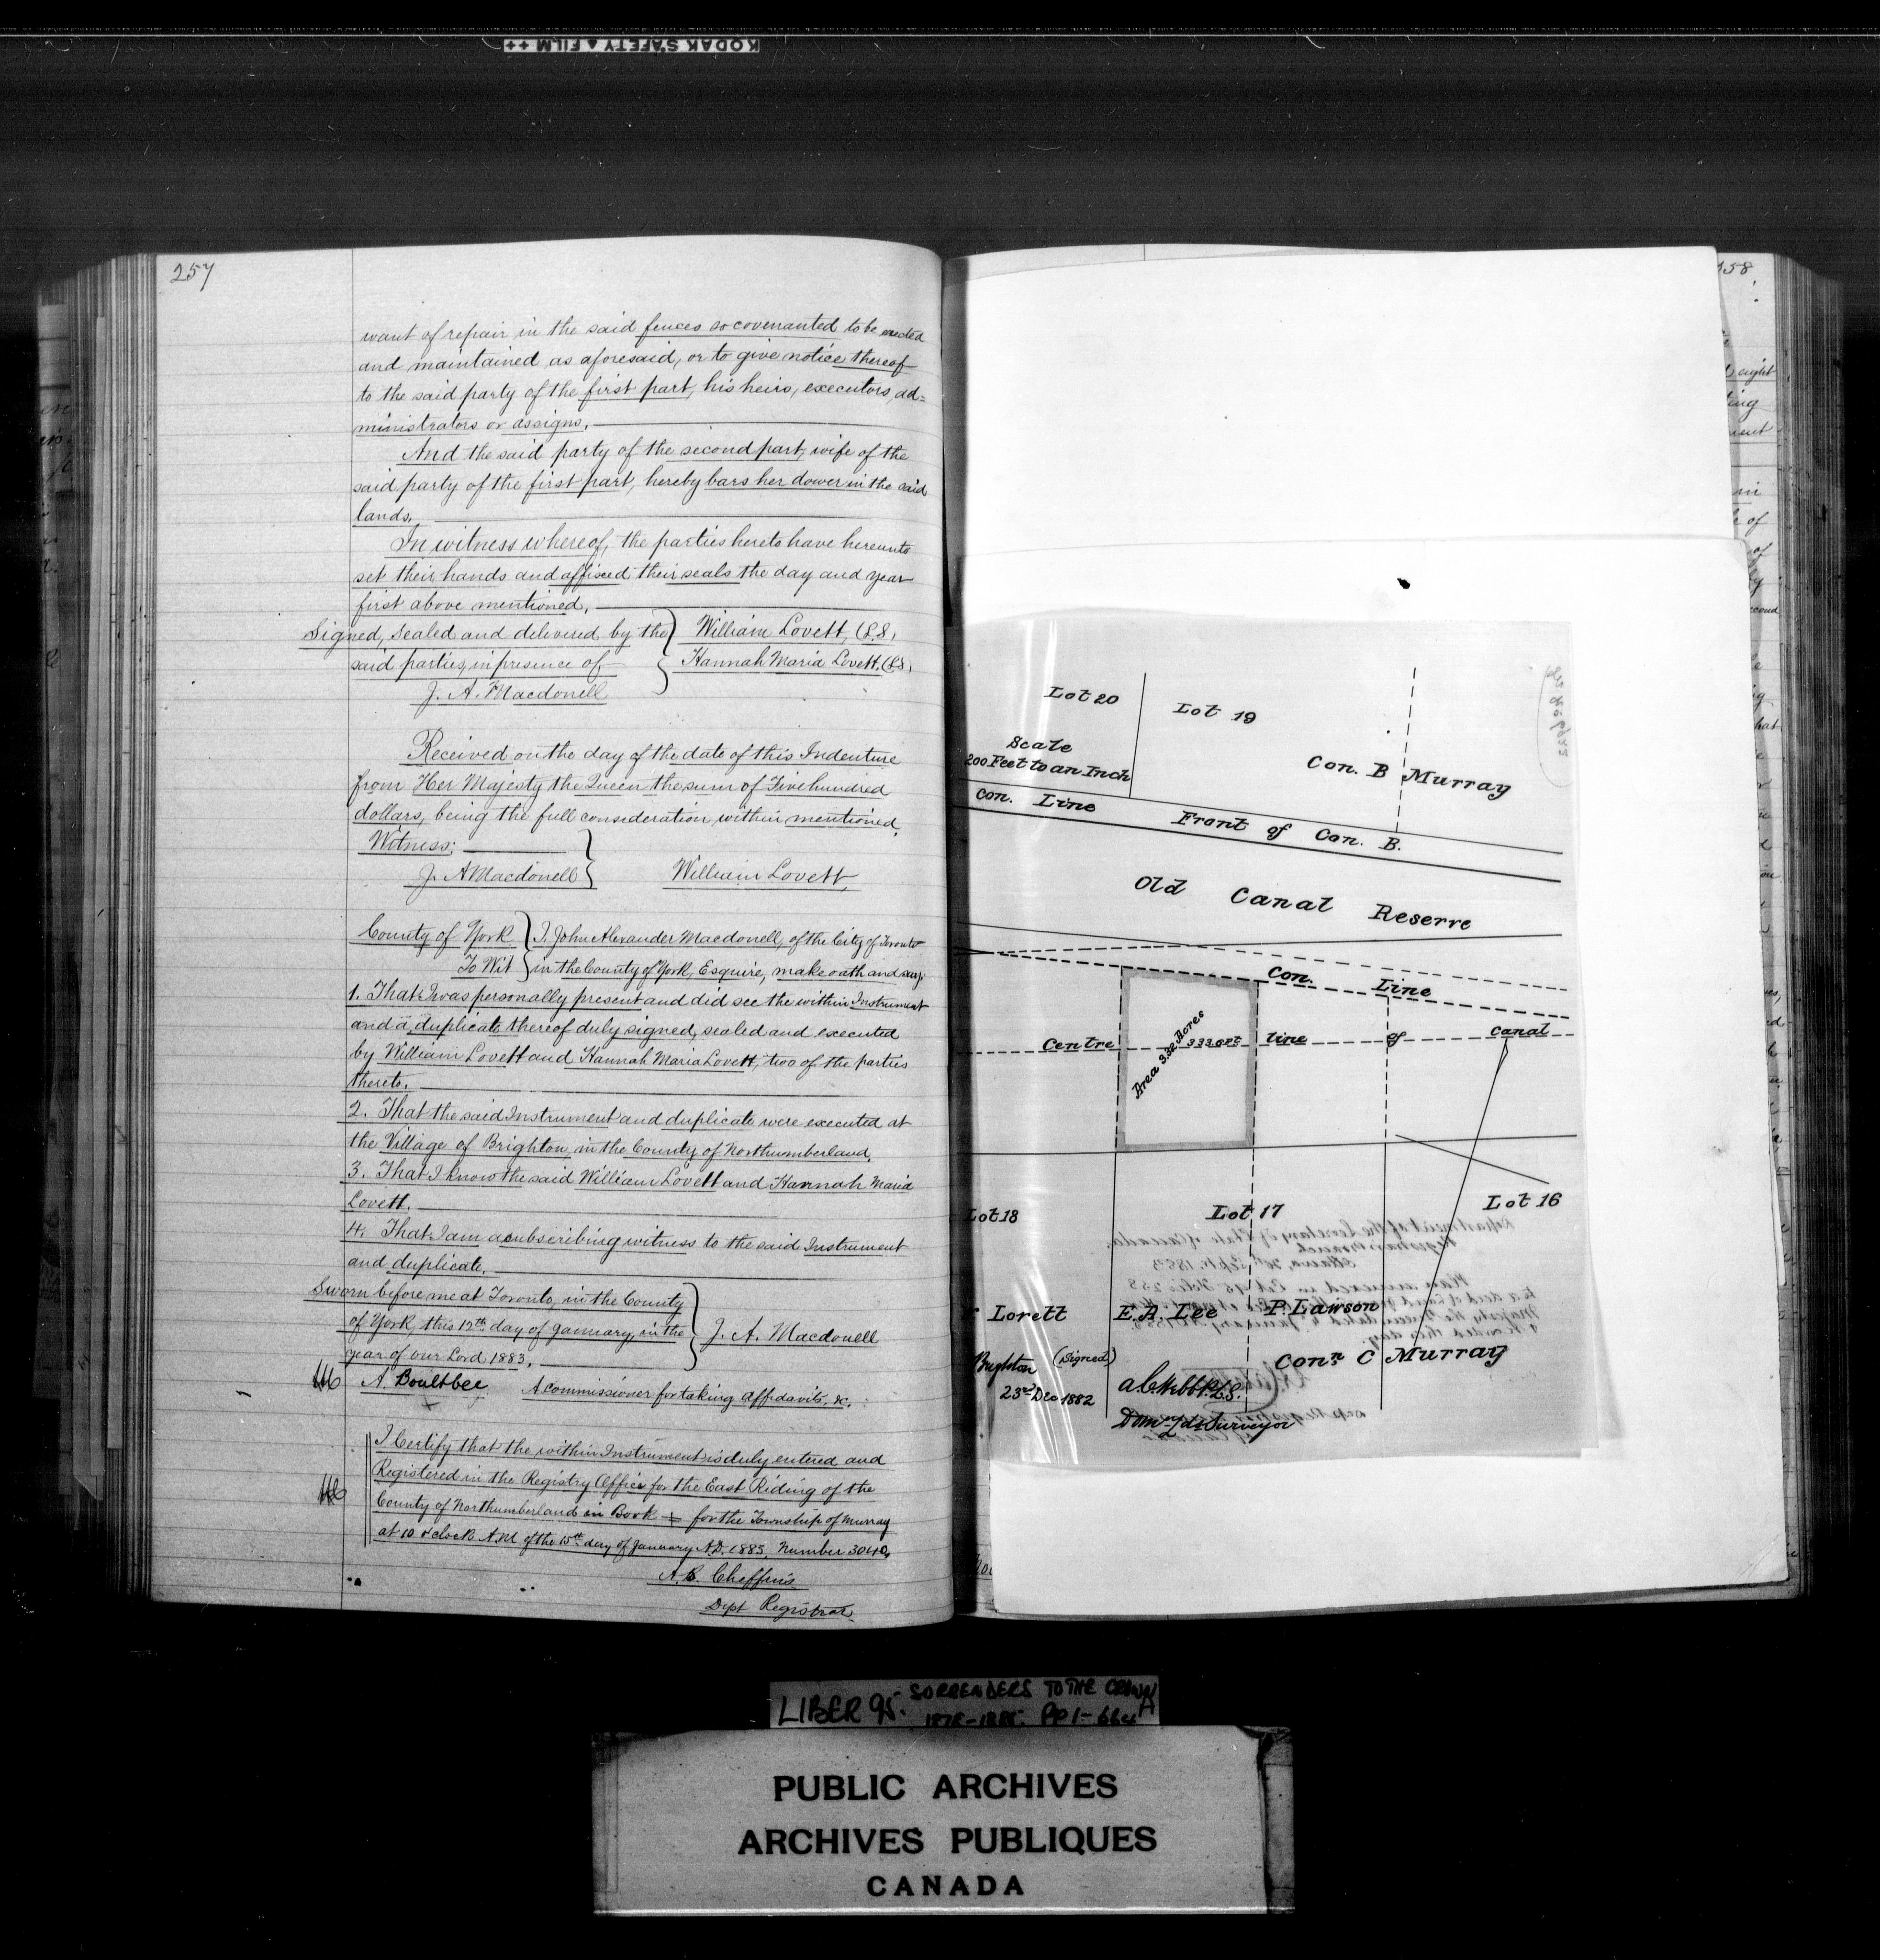 KODAK SAFETY FILM ++
257
want of repair in the said fences so covenanted to be erected
and maintained as aforesaid, or to give notice thereof
to the said party of the first part, his heirs, executors, ad=
ministrators or assigns.
And the said party of the second part, wife of the
said party of the first part, hereby bars her dower in the said
lands.
In witness whereof, the parties hereto have hereunto
set their hands and affixed their seals the day and year
first above mentioned.
Signed, sealed and delivered by the } William Lovett, (L.S.
said parties, in presence of } Hannah Maria Lovett, (L.S.
J. A. Macdonell
Received on the day of the date of this Indenture
from Her Majesty the Queen the sum of Five hundred
dollars, being the full consideration within mentioned.
Witness: }
J. A Macdonell } William Lovett
County of York } I, John Alexander Macdonell, of the City of Toronto
To Wit } in the County of York, Esquire, make oath and say:
1. That I was personally present and did see the within Instrument
and a duplicate thereof duly signed, sealed and executed
by William Lovett and Hannah Maria Lovett, two of the parties
thereto.
2. That the said Instrument and duplicate were executed at
the Village of Brighton in the County of Northumberland.
3. That I know the said William Lovett and Hannah Maria
Lovett.
4. That I am a subscribing witness to the said Instrument
and duplicate.
Sworn before me at Toronto, in the County
of York, this 12th day of January, in the } J. A. Macdonell
year of our Lord 1883.
A. Boultbee A commissioner for taking affidavits, &c.
I Certify that the within Instrument is duly entered and
Registered in the Registry Office for the East Riding of the
County of Northumberland in Book for the Township of Murray
at 10 o'clock A.M of the 15th day of January A.D. 1883, Number 3040.
A. B. Cheffins
Dept Registrar
Lot 20
Lot 19
Scale
200 Feet to an Inch
Con. B Murray
Con. Line
Front of Con. B.
Old Canal Reserve
Con. Line
Centre line of canal
Area 3.32 Acres
Lot 18
Lot 17
Lot 16
Lorett
E.A. Lee
P. Lawson
Conn C Murray
Brighton
(Signed)
23rd Dec 1882
a.C. Webb P.L.S.
Domn Lds Surveyor
LIBER 95. SURRENDERS TO THE CROWN
PUBLIC ARCHIVES
ARCHIVES PUBLIQUES
CANADA